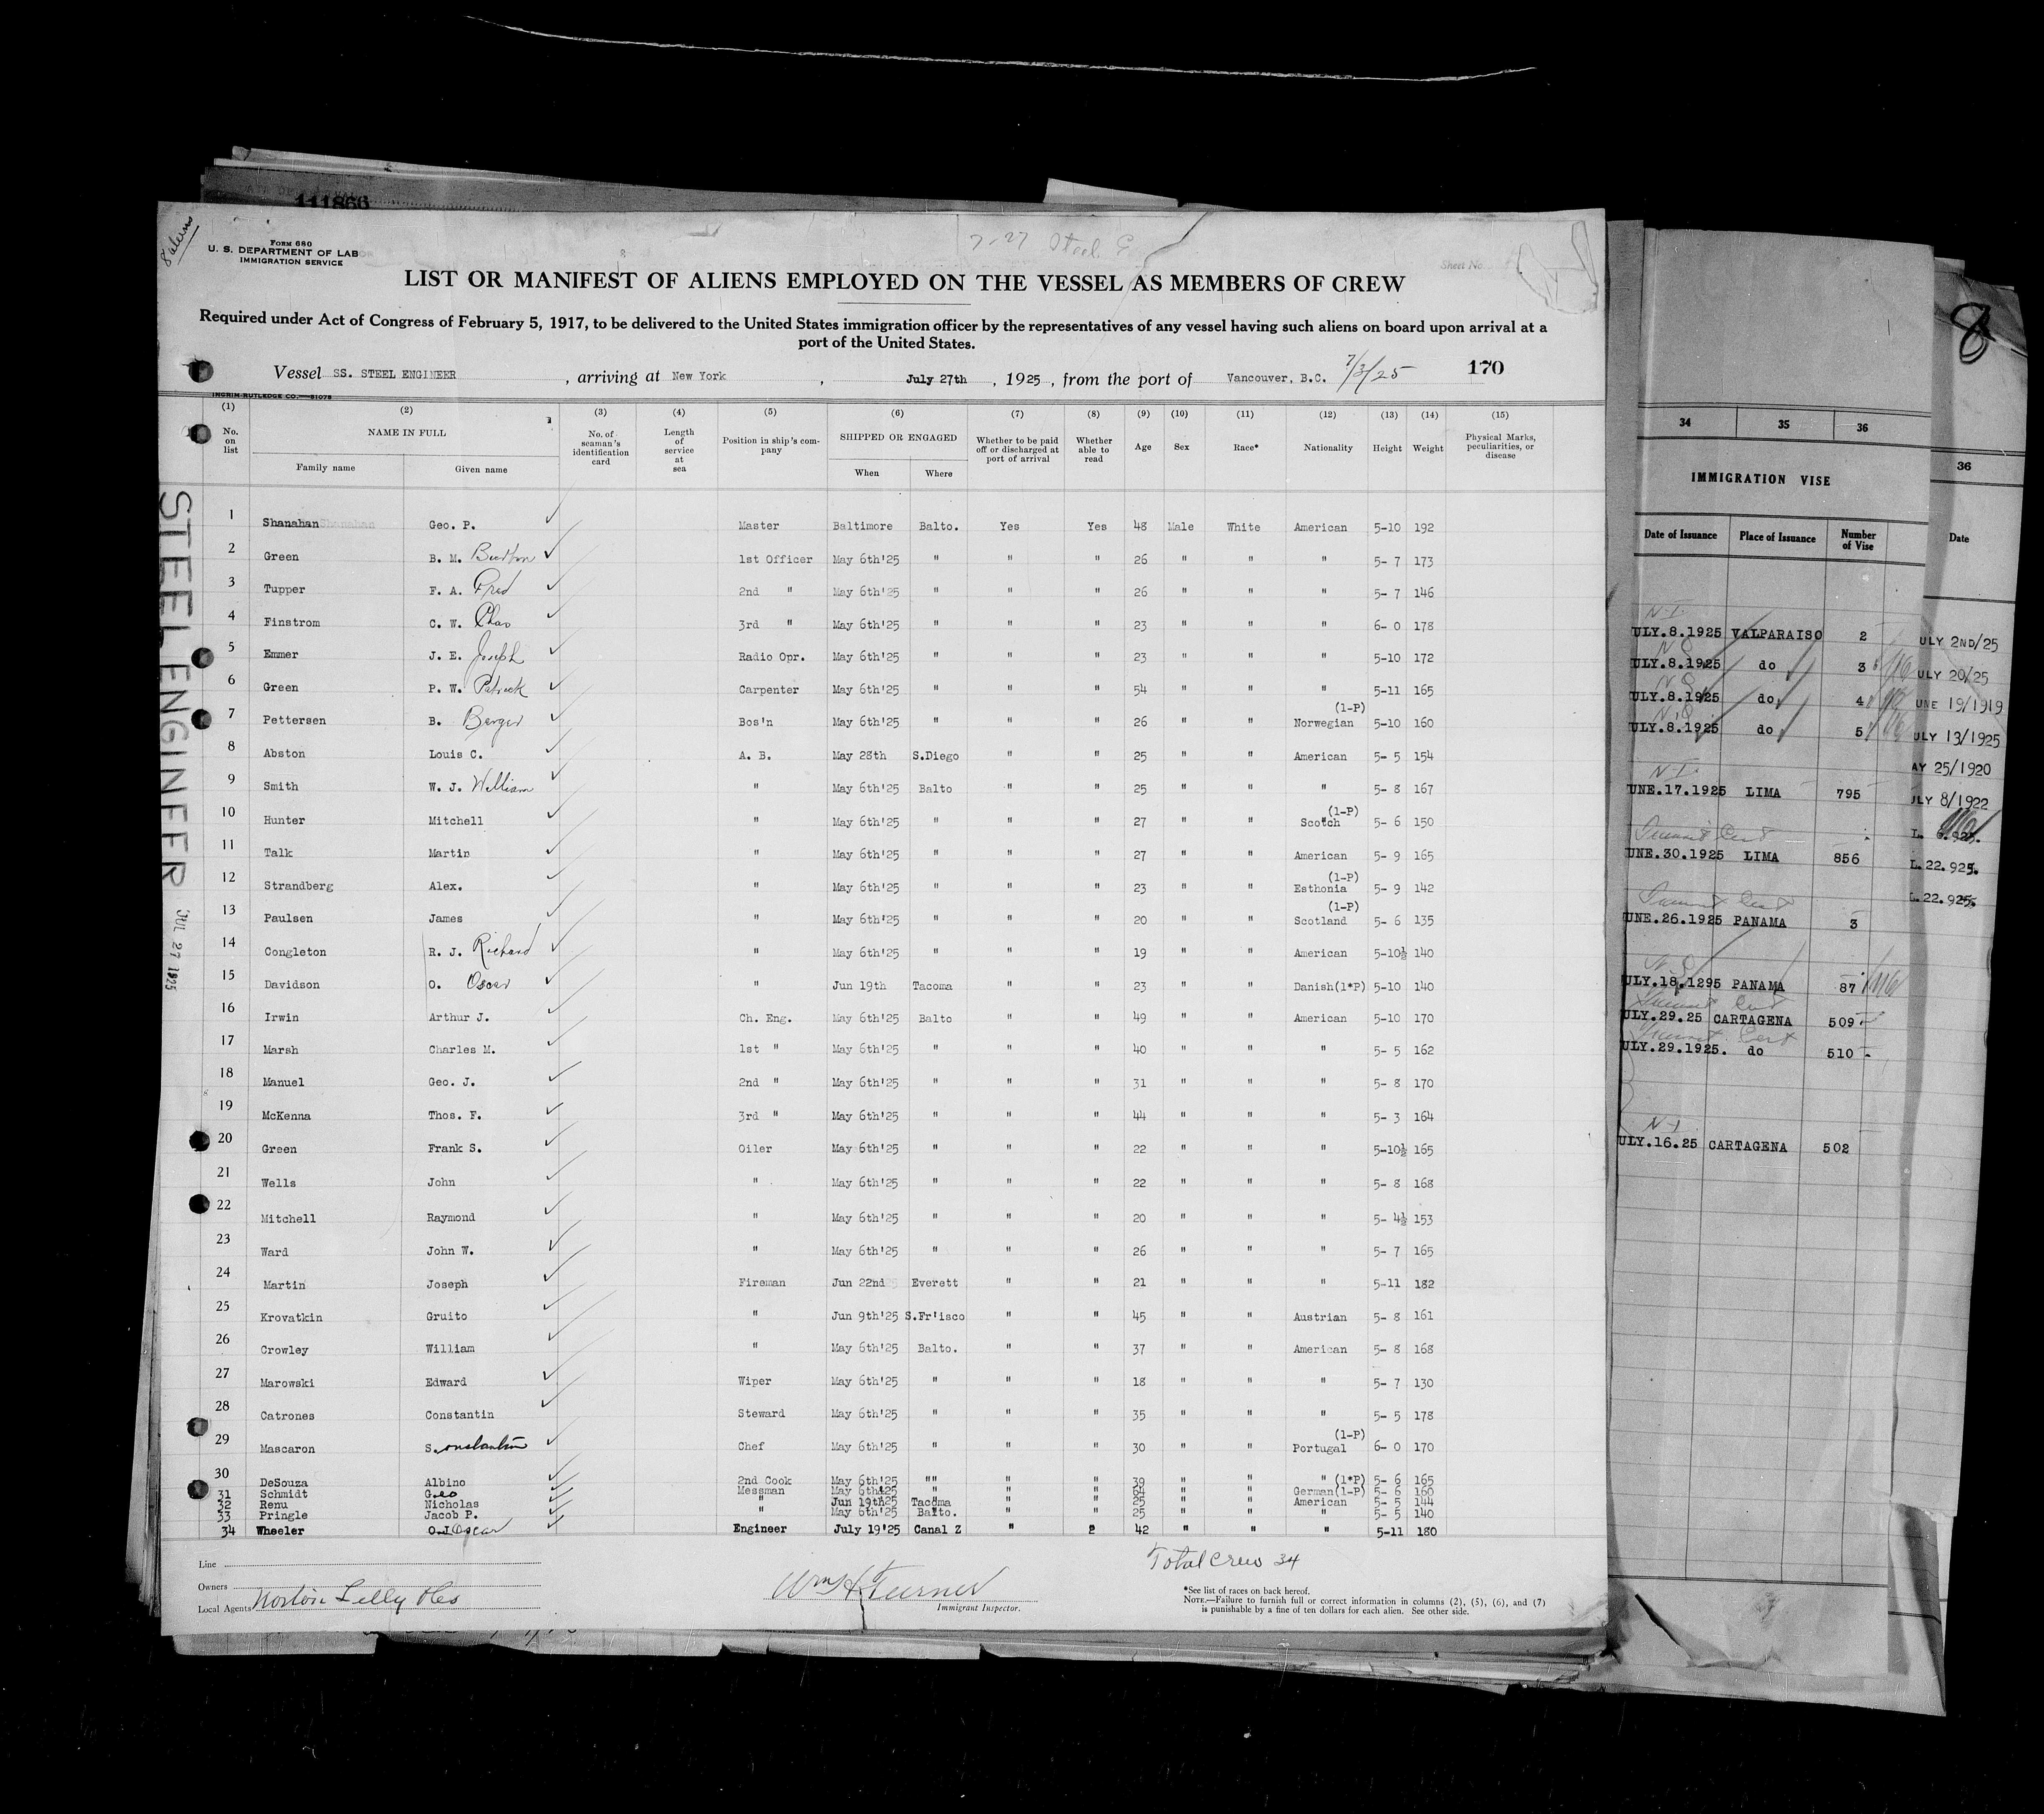 111866
8 aliens
FORM 680
U. S. DEPARTMENT OF LABOR
IMMIGRATION SERVICE
7-27 Steel E
Sheet No.
LIST OR MANIFEST OF ALIENS EMPLOYED ON THE VESSEL AS MEMBERS OF CREW
Required under Act of Congress of February 5, 1917, to be delivered to the United States immigration officer by the representatives of any vessel having such aliens on board upon arrival at a
port of the United States.
Vessel SS. STEEL ENGINEER , arriving at New York , July 27th , 1925 , from the port of Vancouver, B.C. 7/3/25 170
INGRIM-RUTLEDGE CO.—51078
(1) (2) (3) (4) (5) (6) (7) (8) (9) (10) (11) (12) (13) (14) (15)
No. on list NAME IN FULL Family name Given name No. of seaman's identification card Length of service at sea Position in ship's company SHIPPED OR ENGAGED When Where Whether to be paid off or discharged at port of arrival Whether able to read Age Sex Race* Nationality Height Weight Physical Marks, peculiarities, or disease
1 Shanahan Geo. P. Master Baltimore Balto. Yes Yes 48 Male White American 5-10 192
2 Green B. M. Burton 1st Officer May 6th'25 " " " 26 " " " 5- 7 173
3 Tupper F. A. Fred 2nd " May 6th'25 " " " 26 " " " 5- 7 146
4 Finstrom C. W. Chas 3rd " May 6th'25 " " " 23 " " " 6- 0 178
5 Emmer J. E. Joseph Radio Opr. May 6th'25 " " " 23 " " " 5-10 172
6 Green P. W. Patrick Carpenter May 6th'25 " " " 54 " " " 5-11 165
7 Pettersen B. Berger Bos'n May 6th'25 " " " 26 " " (1-P) Norwegian 5-10 160
8 Abston Louis C. A. B. May 28th S.Diego " " 25 " " American 5- 5 154
9 Smith W. J. William " May 6th'25 Balto " " 25 " " " 5- 8 167
10 Hunter Mitchell " May 6th'25 " " " 27 " " (1-P) Scotch 5- 6 150
11 Talk Martin " May 6th'25 " " " 27 " " American 5- 9 165
12 Strandberg Alex. " May 6th'25 " " " 23 " " (1-P) Esthonia 5- 9 142
13 Paulsen James " May 6th'25 " " " 20 " " (1-P) Scotland 5- 6 135
14 Congleton R. J. Richard " May 6th'25 " " " 19 " " American 5-10½ 140
15 Davidson O. Oscar " Jun 19th Tacoma " " 23 " " Danish(1*P) 5-10 140
16 Irwin Arthur J. Ch. Eng. May 6th'25 Balto " " 49 " " American 5-10 170
17 Marsh Charles M. 1st " May 6th'25 " " " 40 " " " 5- 5 162
18 Manuel Geo. J. 2nd " May 6th'25 " " " 31 " " " 5- 8 170
19 McKenna Thos. F. 3rd " May 6th'25 " " " 44 " " " 5- 3 164
20 Green Frank S. Oiler May 6th'25 " " " 22 " " " 5-10½ 165
21 Wells John " May 6th'25 " " " 22 " " " 5- 8 168
22 Mitchell Raymond " May 6th'25 " " " 20 " " " 5- 4½ 153
23 Ward John W. " May 6th'25 " " " 26 " " " 5- 7 165
24 Martin Joseph Fireman Jun 22nd Everett " " 21 " " " 5-11 182
25 Krovatkin Gruito " Jun 9th'25 S.Fr'isco " " 45 " " Austrian 5- 8 161
26 Crowley William " May 6th'25 Balto. " " 37 " " American 5- 8 168
27 Marowski Edward Wiper May 6th'25 " " " 18 " " " 5- 7 130
28 Catrones Constantin Steward May 6th'25 " " " 35 " " " 5- 5 178
29 Mascaron S. onstantin Chef May 6th'25 " " " 30 " " (1-P) Portugal 6- 0 170
30 DeSouza Albino 2nd Cook May 6th'25 "" " " 39 " " " (1*P) 5- 6 165
31 Schmidt Geo Messman May 6th'25 " " " 64 " " German(1-P) 5- 6 160
32 Renu Nicholas " Jun 19th25 Tacoma " " 25 " " American 5- 5 144
33 Pringle Jacob P. " May 6th'25 Balto. " " 25 " " " 5- 5 140
34 Wheeler O.J Oscar Engineer July 19'25 Canal Z " 2 42 " " " 5-11 180
STEEL ENGINEER JUL 27 1925
Line
Owners
Local Agents Norton Lilly & Co
Wm H Turner
Immigrant Inspector.
Total Crew 34
*See list of races on back hereof.
NOTE.—Failure to furnish full or correct information in columns (2), (5), (6), and (7)
is punishable by a fine of ten dollars for each alien. See other side.
34 35 36
IMMIGRATION VISE
Date of Issuance Place of Issuance Number of Vise
N-I.
ULY.8.1925 VALPARAISO 2
ULY.8.1925 do 3
ULY.8.1925 do 4
ULY.8.1925 do 5
N-I.
UNE.17.1925 LIMA 795
UNE.30.1925 LIMA 856
UNE.26.1925 PANAMA 3
ULY.18.1295 PANAMA 87
ULY.29.25 CARTAGENA 509
ULY.29.1925. do 510
N-I
ULY.16.25 CARTAGENA 502
8
36
Date
ULY 2ND/25
ULY 20/25
UNE 19/1919
ULY 13/1925
AY 25/1920
ULY 8/1922
L. 6.925.
L.22.925.
L.22.925.